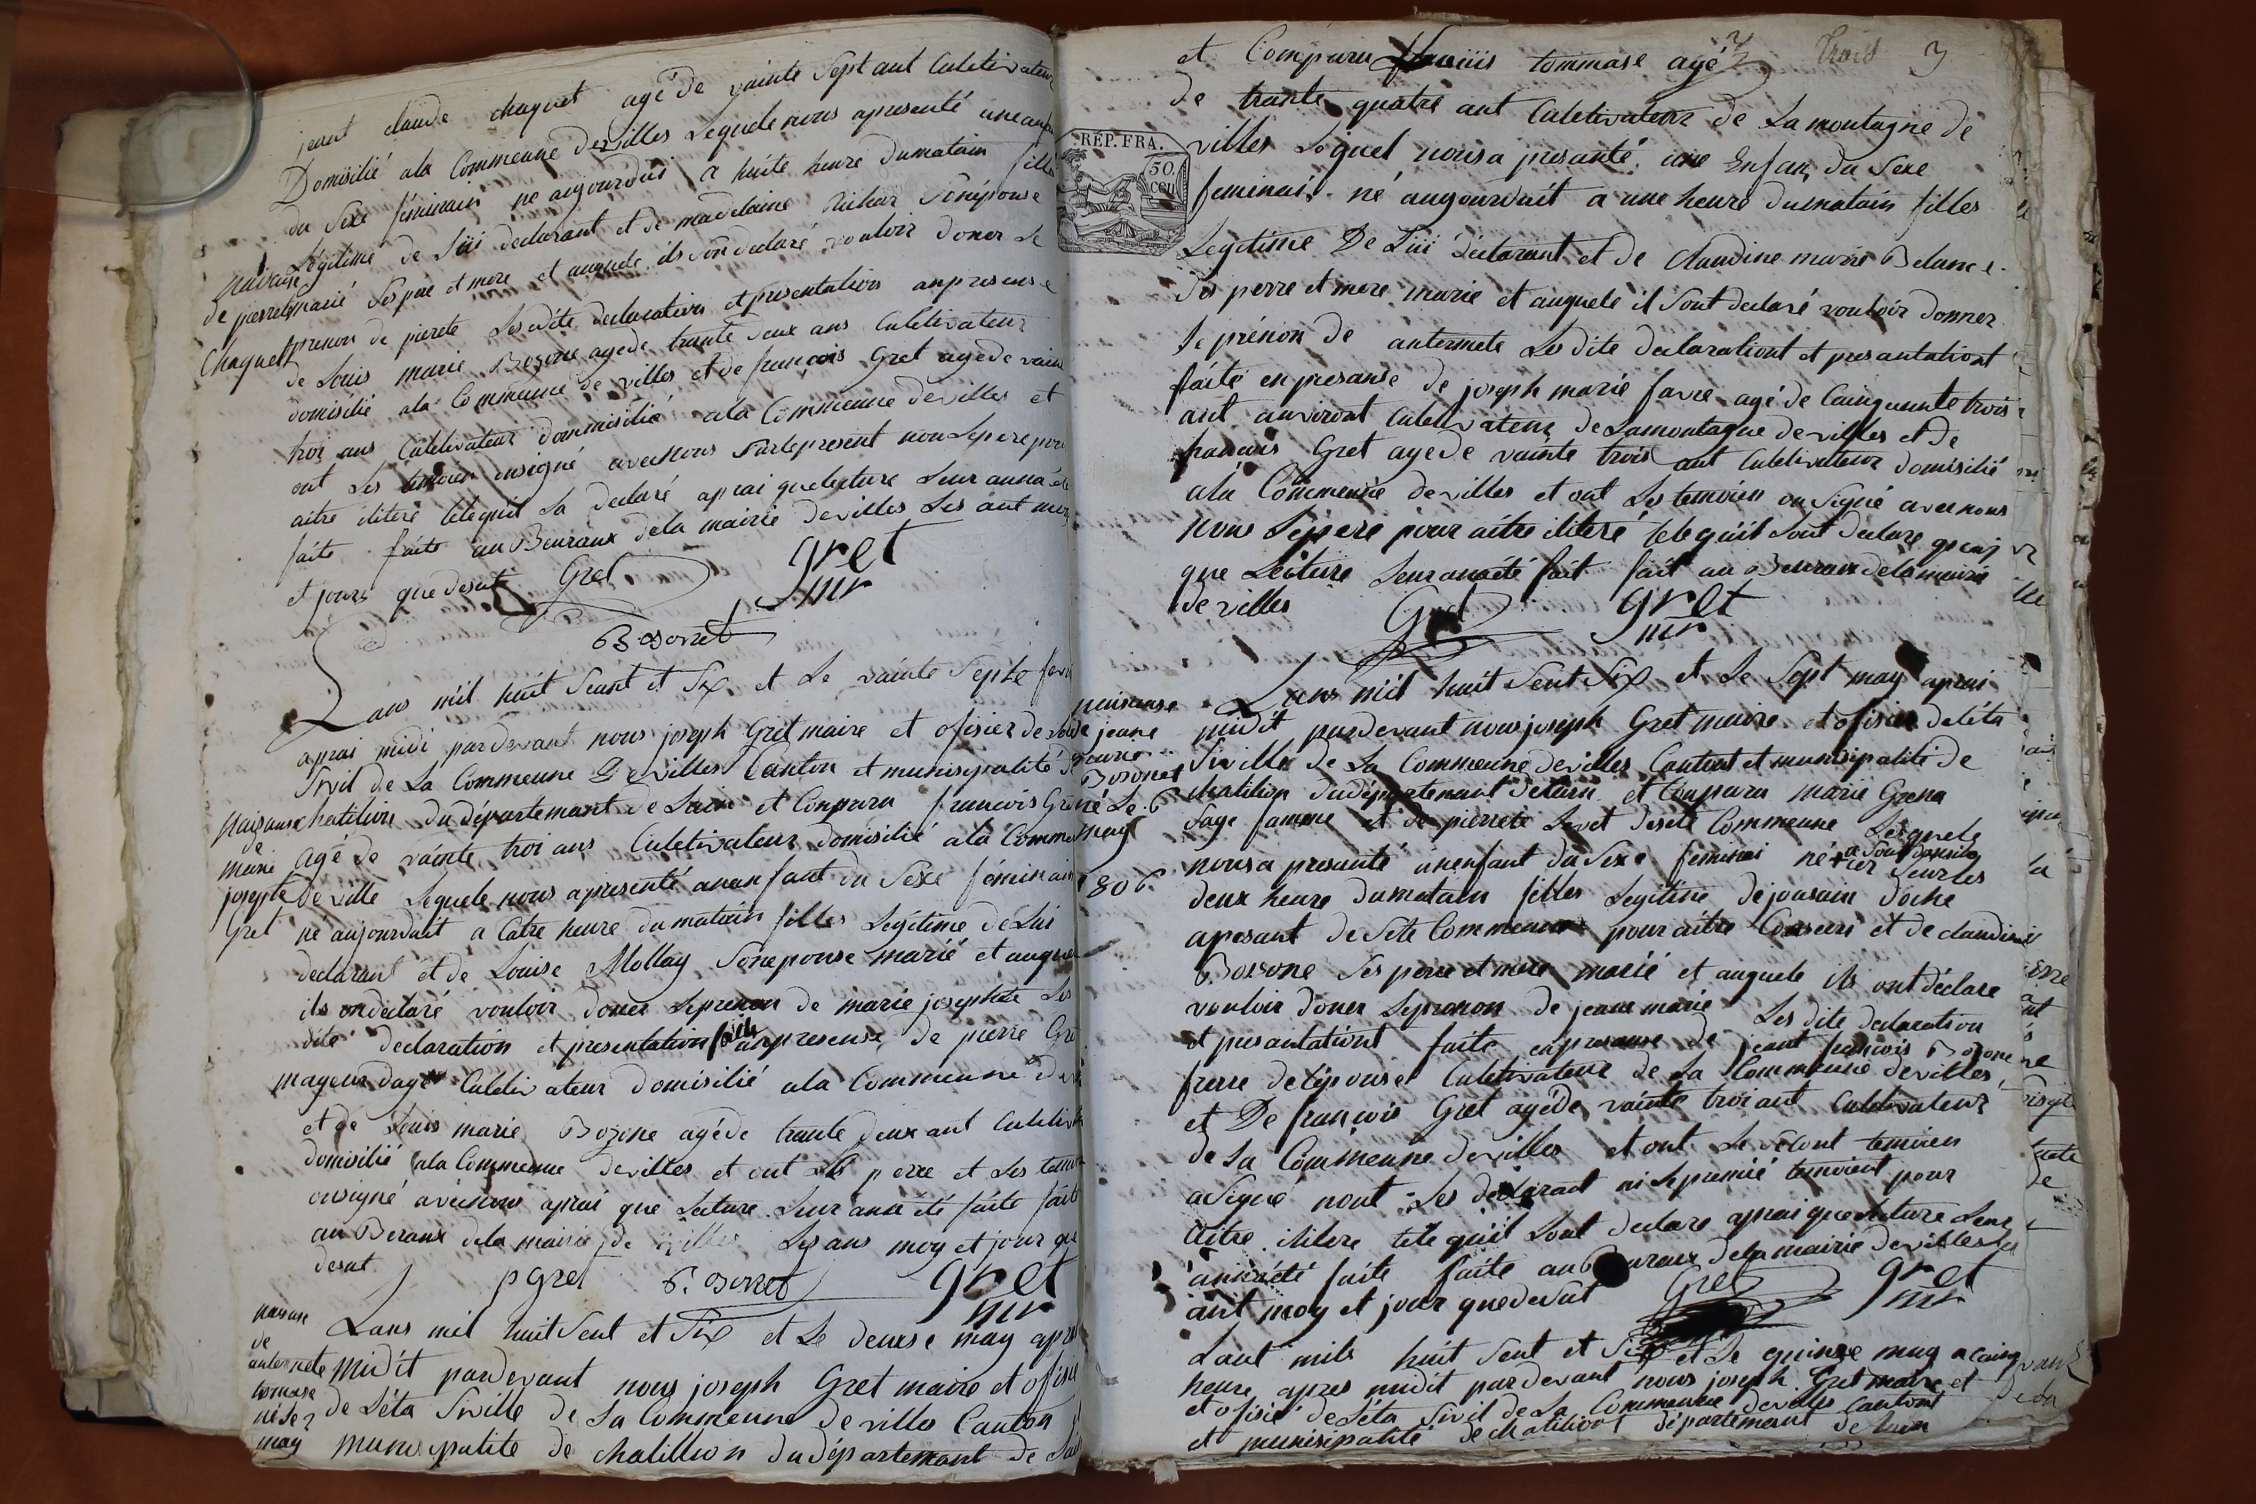 jeant claude chaquet agé de vainte sept ant Culetivateur
Domisilié ala Commeune devilles Lequele nous apresenté une anfan
du Sexe féminain né aujourdui a huite heure dumatain fille
Légitime de Lüi declarant et de madelaine Sonépouse
marié Ses pere et mere et auquele ils on declaré vouloir doner Le
prenon de pierete Les dite declaration et presentation anpresense
de Louis marie Bozone agede trante deux ans Culetivateur
domisilié ala Commeune de villes et de françois Gret agede vainte
troi ans Culetivateur dommisilié ala Commeune devilles et
ont Les temoin onsigné avecnous Surlepresent non Lepere pour
aitre iliteré telequil La declaré aprai quelecture Leur anna été
faite faite au Beuraux dela mairie devilles Les ant mois
et jours que desut Gret gret
mr
Bozonet
naisanse
de pierete
Chaquet
Lans mil huit Seant et Six et Le vainte Septe fevri
aprai midi pardevant nous joseph Gret maire et ofisier de
Sivil de La Commeune De villes Canton et munisipalité de
chatilion du département de Lain et Conparu francois Gret
Agé de vainte troi ans Culetivateur domisilié ala Comme
de ville Lequele nous apresenté ananfant du Sexe féminain
né aujourduit a Catre heure du matain filles Legitime de Lui
declarant et de Louise Mollay Sonepouse marié et auque
ils ondeclaré vouloir doner Leprenon de marie josephete Les
dite declaration et presentation faite anpresense de pierre Gre
mayeur dage Culetivateur domisilié ala Commeune de vi
et de Louis marie Bozone agéde trante deux ant Culetivat
domisilié ala Commeune devilles et ont Les perre et Les temoin
onsigné avecnous aprai que Lecture Leur anna été faite faite
au Beraux dela mairie de villes Les ans moy et jour que
desut p gret B. ozonet gret
mr
naisanse
de
marie
josephte
Gret
Lans mil huit Sent et Six et Le deuxe may aprai
midit pardevant nous joseph Gret maire et ofisié
de Léta Siville de La Commeune de villes Canton
munisipalite de chatillion du département de Lain
naisanse
de
anternete
tomase
né Le 2
may
trois 3
et Comparu françiis tommase agé
de trante quatre ant Culetivateur de Lamontagne de
villes Lequel nousa presanté une Enfan du Sexe
feminain né augourduit a une heure dumatain filles
RÉP. FRA.
50.
CEN
Legitime De Lüi déclarant et de Claudine marie Belance
Ses perre et mere marie et auquele il Sont declaré vouloir donner
Le prénon de anternete Les dite déclarationt et presantationt
faite en presanse de joseph marie favre agé de Cainquante trois
ant anviront Culetivateur de Lamontagne de villes et de
francois Gret agede vainte trois ant Culetivateur domisilié
ala Commeune de villes et ont Les temoien on Signé avecnous
Non Lepere pour aitre iliteré tele quil Sont declare aprai
que Lecture Leur anaété fait fait au Beuraux dela mairie
de villes Gret gret
mr
Lans mil huit Sent Six et Le Sept may aprai
midit pardevant nous joseph Gret maire et ofisier deléta
Siville de La Commeune devilles Cantont et munisipalité de
chatilion dudépartemant delain et Comparu marie Grena
Sage famme et de pierrete Levet desete Commeune Lesquele
nousa presanté unenfant du Sexe féminai né ier Sur les
deux heure dumatain filles Legitime dejousain doche
apesant de Sete Commeune pour aitre Conseri et de claudine
Bozone Ses perre et mere marié et auquele ils ont déclare
vouloir doner Leprenon de jeane marie Les dite declaration
et presantationt faite enpresanse de jeant françois Bozone
frerre delépouse Culetivateur de La Commeune de villes
et De françois Gret agéde vainte troi ant Culetivateur
de La Commeune devilles et ont Le Segont temoien
aSigné nont Les declarant ni Lepremié temoient pour
aitre ilitere tele quil Sont declare aprai que Lecture Leur
annaété faite faite au Beuraux dela mairie de villes Les
ant moy et jour quedesut Gret gret
mr
naisanse
de jeane
marie
Bozonet
né Le 6
may
1806
Lant mile huit Sent et Six et Le quinze may a Cainq
heure apres midit pardevant nous joseph Gret maire et
et ofisié de Léta Sivil de La Commeune devilles Cantont
et munisipalité de chatiliont département de Lain